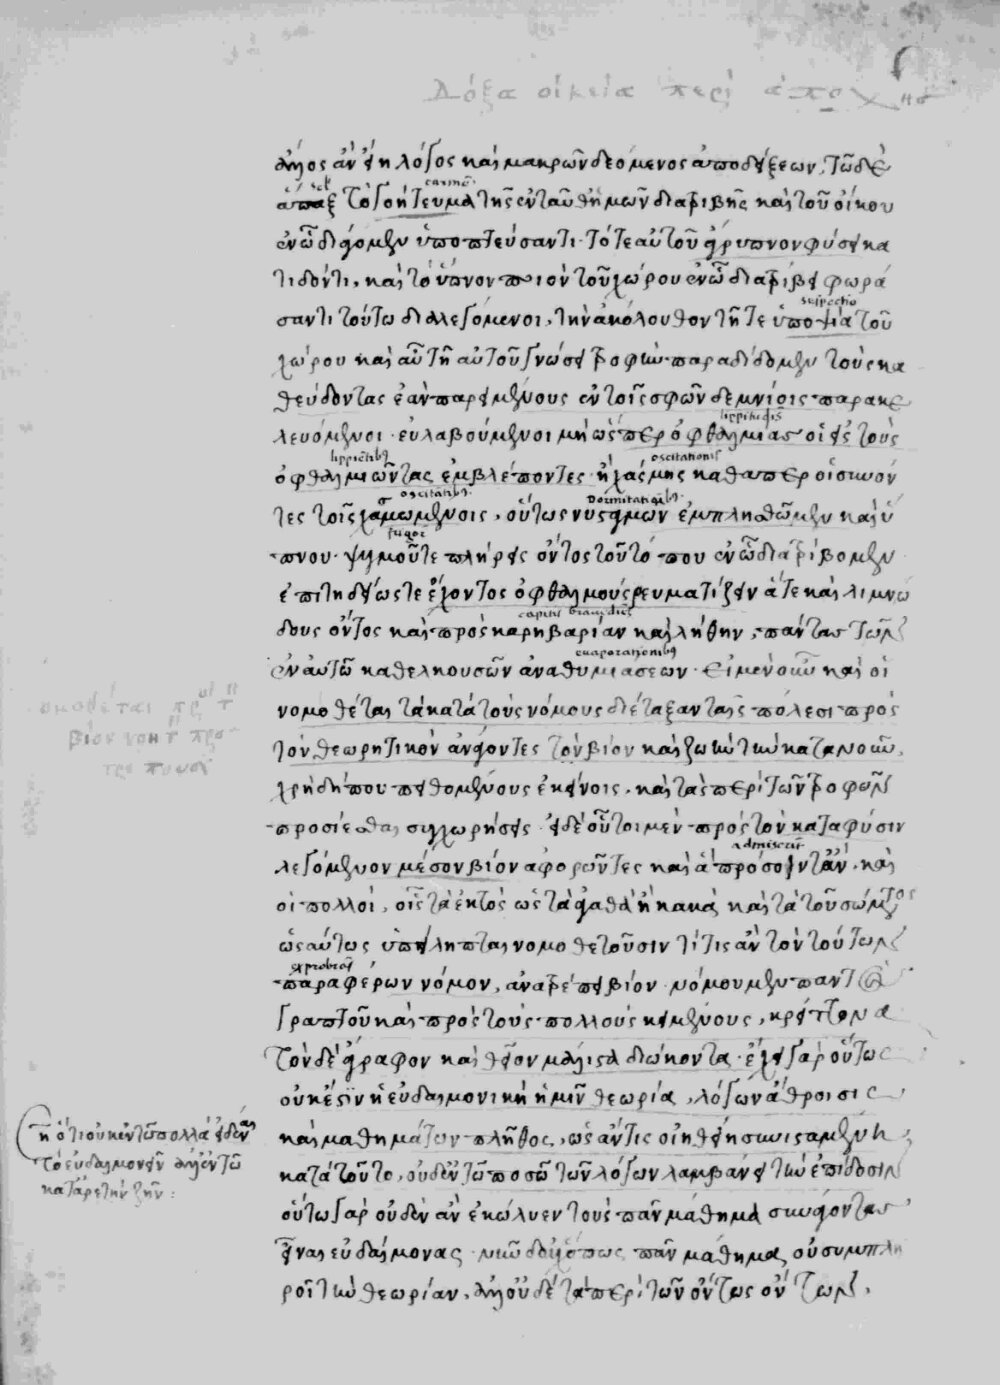 Δόξα οἰκεία περὶ ἀποχ
ἄλλος ἂν εἴη λόγος καὶ μακρῶν δεόμενος ἀποδείξεων. τῶ δὲ
ἅπαξ τὸ γοήτευμα τῆς ἐνταῦθ ἡμῶν διατριβῆς καὶ τοῦ οἴκου
ἐν ὧ διάγομεν ὑποπτεύσαντι. τό τε αὐτοῦ ἄγρυπνον φύσει κα
τιδόντι, καὶ τὸ ὑπνοποιὸν τοῦ χώρου ἐν ὧ διατρίβει φωρά
suspectio
σαντι τούτω διαλεγόμενοι, τὴν ἀκόλουθον τῆ τε ὑποψία τοῦ
χώρου καὶ αὐτῆ αὐτοῦ γνώσει τροφὴν παραδίδομεν τοὺς κα
θεύδοντας ἐὰν παρειμένους ἐν τοῖς σφῶν δεμνίοις παρακε
λευόμενοι. εὐλαβούμενοι μὴ ὥσπερ ὀφθαλμίας οἱ εἰς τοὺς
ὀφθαλμιῶντας ἐμβλέποντες. ἢ χάσμης καθάπερ οἱ συνόν
τες τοῖς χασμωμένοις, οὕτως νυσταγμῶν ἐμπλησθῶμεν καὶ ὕ
πνου. ψύξεως τε πλήρης ὄντος τοῦ τόπου ἐν ὧ διατρίβομεν
ἐπιτηδείως τε ἔχοντος ὀφθαλμοὺς ῥευματίζειν ἅτε καὶ λιμνώ
δους ὄντος καὶ πρὸς καρηβαρίαν καὶ λήθην, πάντας τῶν
ἐν αὐτῶ καθελκουσῶν ἀναθυμιάσεων. εἰ μὲν οὖν καὶ οἱ
νομοθέται τὰ κατὰ τοὺς νόμους διέταξαν ταῖς πόλεσι πρὸς
τὸν θεωρητικὸν ἀνάγοντες τὸν βίον καὶ ζωὴν τὴν κατὰ νοῦν,
χρὴ δήπου πειθομένους ἐκείνοις, καὶ τὰς περὶ τῶν τροφῶν
προσίεσθαι συγχωρήσεις. εἰ δὲ οὗτοι μὲν πρὸς τὸν κατὰ φύσιν
λεγόμενον μέσον βίον ἀφορῶντες καὶ ἃ πρόσοιντ ἂν. καὶ
οἱ πολλοί, οἷς τὰ ἐκτὸς ὡς τἀγαθὰ ἢ κακὰ καὶ τὰ τοῦ σώματος
ὡσαύτως ὑπείληπται νομοθετοῦσιν τί τις ἂν τὸν τούτων
παραφέρων νόμον, ἀνατρέπει βίον νόμου μὲν παντὸς
γραπτοῦ καὶ πρὸς τοὺς πολλοὺς κειμένους, κρείττονα
τὸν δὲ ἄγραφον καὶ θεῖον μάλιστα διώκοντα. ἔχει γὰρ οὕτως
οὐκ ἔστιν ἡ εὐδαιμονικὴ ἡμῖν θεωρία, λόγων ἄθροισις
καὶ μαθημάτων πλῆθος, ὡς ἄν τις οἰηθείη συνισταμένη
κατὰ τοῦτο, οὐδ ἐν τῶ ποσῶ τῶν λόγων λαμβάνει τὴν ἐπίδοσιν
οὕτω γὰρ οὐδὲν ἂν ἐκώλυεν τοὺς πᾶν μάθημα συνάγοντας
εἶναι εὐδαίμονας. νῦν δ οὐχ ὅπως πᾶν μάθημα οὐ συμπλη
ροῖ τὴν θεωρίαν, ἀλλ οὐδὲ τὰ περὶ τῶν ὄντως ὄντων,
ὅτι οὐκ ἐν τῶ πολλὰ εἰδέναι
τὸ εὐδαιμονεῖν ἀλλ ἐν τῶ
κατ ἀρετὴν ζῆν: